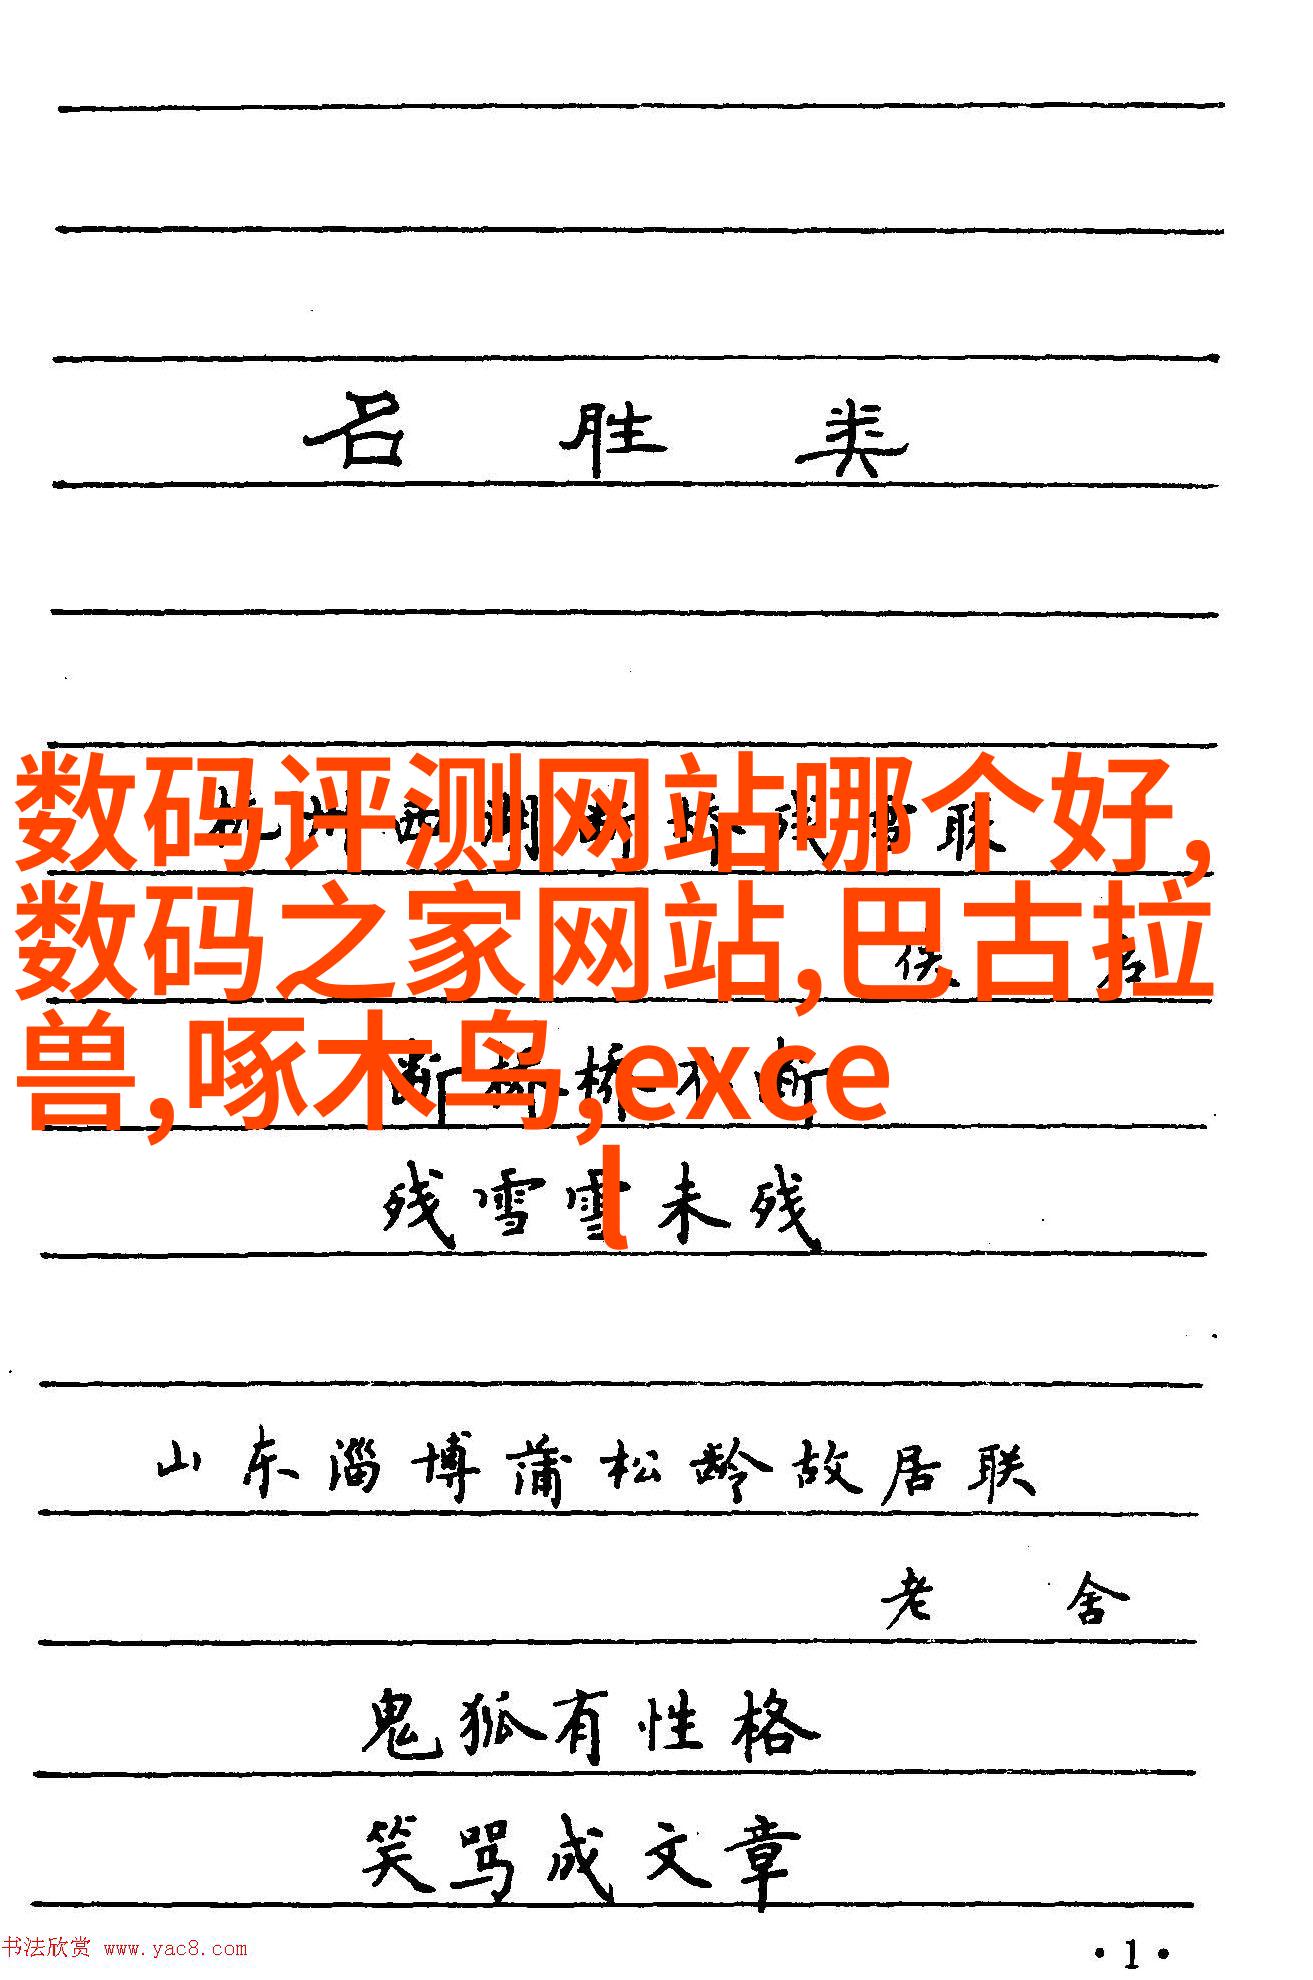 名胜类
杭州西湖断桥残雪联
数码评测网站哪个好,
佚名
数码之家网站,巴古拉
断桥桥不断
兽,啄木鸟,exce
l
残雪雪未残
山东淄博蒲松龄故居联
老舍
鬼狐有性格
笑骂成文章
书法欣赏 www.yac8.com
·1·